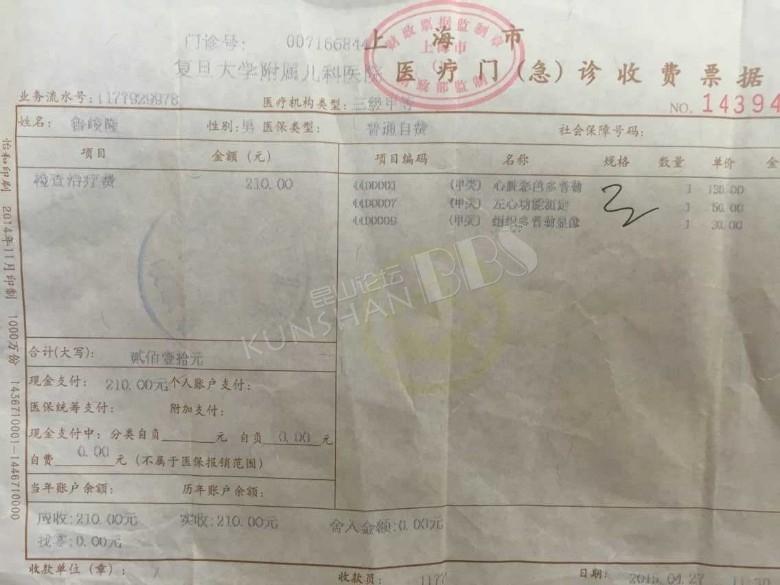 门诊号: 00716684
上海市
复旦大学附属儿科医院 医疗门(急)诊收费票据
业务流水号:1177929978 医疗机构类型:三级甲等 NO. 14394
姓名: 性别:男 医保类型: 普通自费 社会保障号码:
项目 金额(元) 项目编码 名称 规格 数量 单价 金
检查治疗费 210.00 (甲类) 心脏彩色多普勒 1 130.00
(甲类) 左心功能测定 1 50.00
(甲类) 组织多普勒显像 1 30.00
昆山论坛
KUNSHAN BBS
合计(大写): 贰佰壹拾元
现金支付: 210.00元 个人账户支付:
医保统筹支付: 附加支付:
现金支付中: 分类自负 元 自负 0.00 元
自费 0.00 元 (不属于医保报销范围)
当年账户余额: 历年账户余额:
应收:210.00元 实收:210.00元 舍入金额:0.00元
找零:0.00元
收款单位(章): 收款员: 1177 日期: 2015.04.27
2014年11月印制 1000万份 1436710001-1446710000